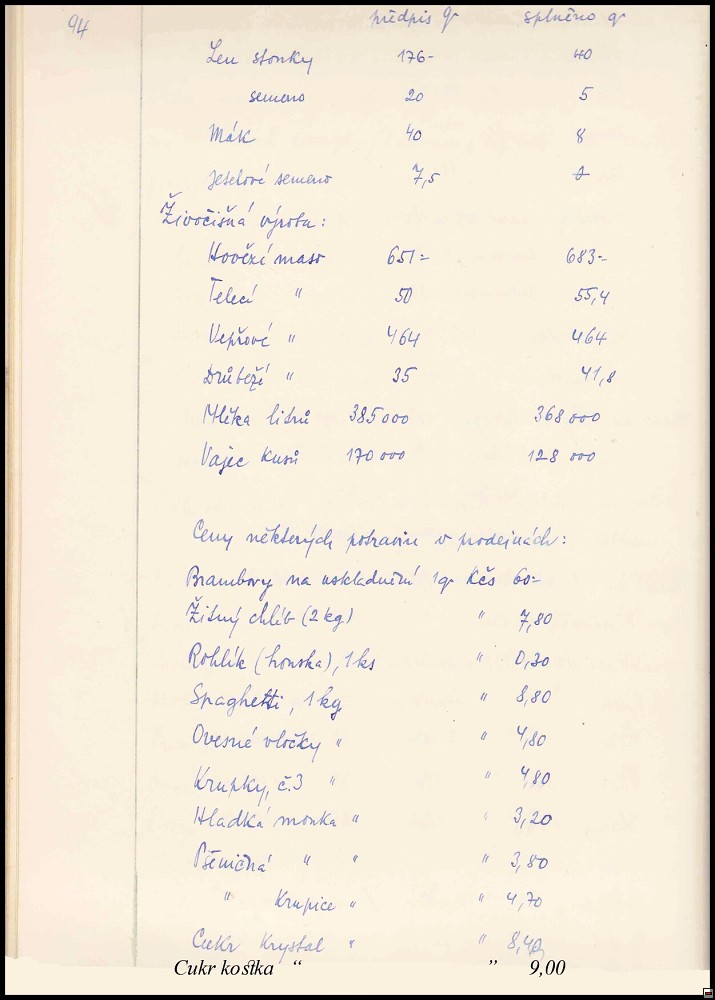 94
předpis q splněno q
Len stonky 176- 40
semeno 20 5
Mák 40 8
Jetelové semeno 7,5 0
Živočišná výroba:
Hovězí maso 651- 683-
Telecí " 50 55,4
Vepřové " 464 464
Drůbeží " 35 41,8
Mléka litrů 385 000 368 000
Vajec kusů 170 000 128 000
Ceny některých potravin v prodejnách:
Brambory na uskladnění 1q Kčs 60-
Žitný chléb (2 kg) " 7,80
Rohlík (houska), 1 ks " 0,30
Spaghetti, 1 kg " 8,80
Ovesné vločky " " 4,80
Krupky, č.3 " " 4,80
Hladká mouka " " 3,20
Pšeničná " " " 3,80
" Krupice " " 4,70
Cukr Krystal " " 8,40
Cukr kostka “ ” 9,00